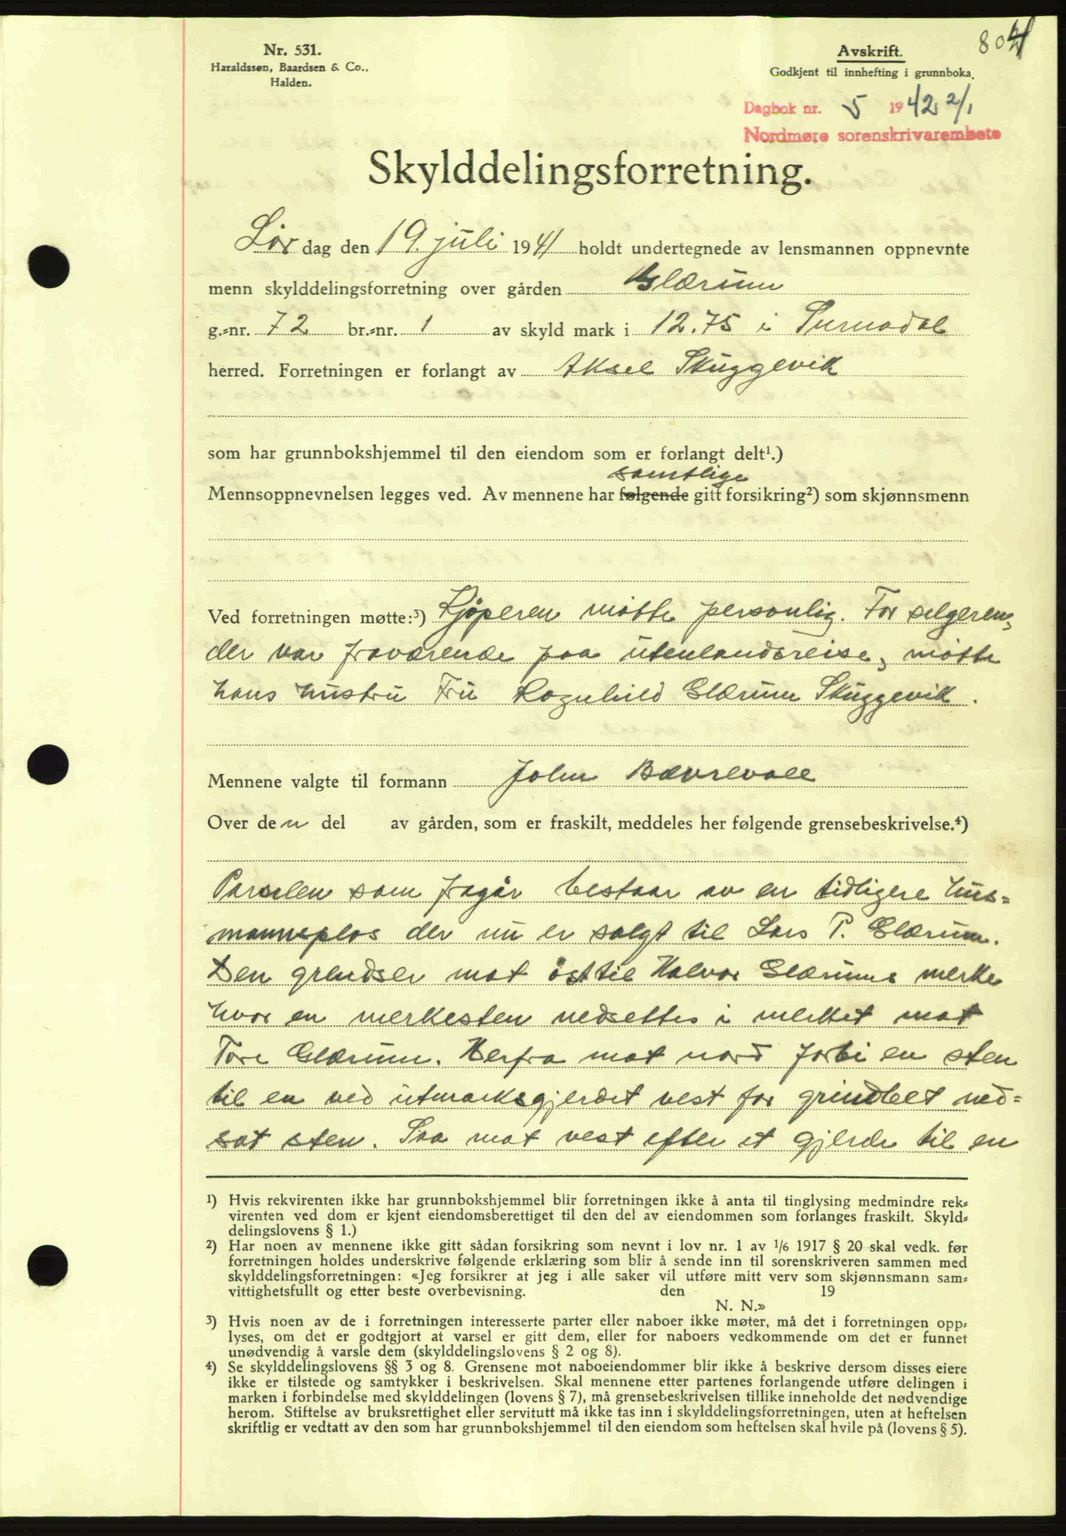 Nr. 531.
Haraldssøn, Baardsen & Co.,
Halden.
Avskrift.
Godkjent til innhefting i grunnboka.
804
Dagbok nr. 5 1942 2/1
Nordmøre sorenskrivarembete
Skylddelingsforretning.
Lørdag den 19. juli 1941 holdt undertegnede av lensmannen oppnevnte
menn skylddelingsforretning over gården Glærum
g.-nr. 72 br.-nr. 1 av skyld mark i 12.75 i Surnadal
herred. Forretningen er forlangt av Aksel Skuggevik
som har grunnbokshjemmel til den eiendom som er forlangt delt¹.)
samtlige
Mennsoppnevnelsen legges ved. Av mennene har følgende gitt forsikring²) som skjønnsmenn
Ved forretningen møtte:³) Kjøperen møtte personlig. For selgeren,
der var fraværende paa utenlandsreise, møtte
hans hustru Fru Ragnhild Glærum Skuggevik.
Mennene valgte til formann John Bævrevoll
Over den del av gården, som er fraskilt, meddeles her følgende grensebeskrivelse.⁴)
Parselen som fragår bestaar av en tidligere hus=
mannsplas der nu er solgt til Lars P. Glærum.
Den grendser mot øst til Halvor Glærums merke
hvor en merkesten nedsettes i merket mot
Tore Glærum. Herfra mot nord forbi en sten
til en ved utmarksgjerdet vest for grindleet ned=
sat sten. Saa mot vest efter et gjerde til en
¹) Hvis rekvirenten ikke har grunnbokshjemmel blir forretningen ikke å anta til tinglysing medmindre rek-
virenten ved dom er kjent eiendomsberettiget til den del av eiendommen som forlanges fraskilt. Skyld-
delingslovens § 1.)
²) Har noen av mennene ikke gitt sådan forsikring som nevnt i lov nr. 1 av 1/6 1917 § 20 skal vedk. før
forretningen holdes underskrive følgende erklæring som blir å sende inn til sorenskriveren sammen med
skylddelingsforretningen: «Jeg forsikrer at jeg i alle saker vil utføre mitt verv som skjønnsmann sam-
vittighetsfullt og etter beste overbevisning. den 19
N. N.»
³) Hvis noen av de i forretningen interesserte parter eller naboer ikke møter, må det i forretningen opp-
lyses, om det er godtgjort at varsel er gitt dem, eller for naboers vedkommende om det er funnet
unødvendig å varsle dem (skylddelingslovens § 2 og 8).
⁴) Se skylddelingslovens §§ 3 og 8. Grensene mot naboeiendommer blir ikke å beskrive dersom disses eiere
ikke er tilstede og samtykker i beskrivelsen. Skal mennene etter partenes forlangende utføre delingen i
marken i forbindelse med skylddelingen (lovens § 7), må grensebeskrivelsen tillike inneholde det nødvendige
herom. Stiftelse av bruksrettighet eller servitutt må ikke tas inn i skylddelingsforretningen, uten at heftelsen
skriftlig er vedtatt av den som har grunnbokshjemmel til den eiendom som heftelsen skal hvile på (lovens § 5).